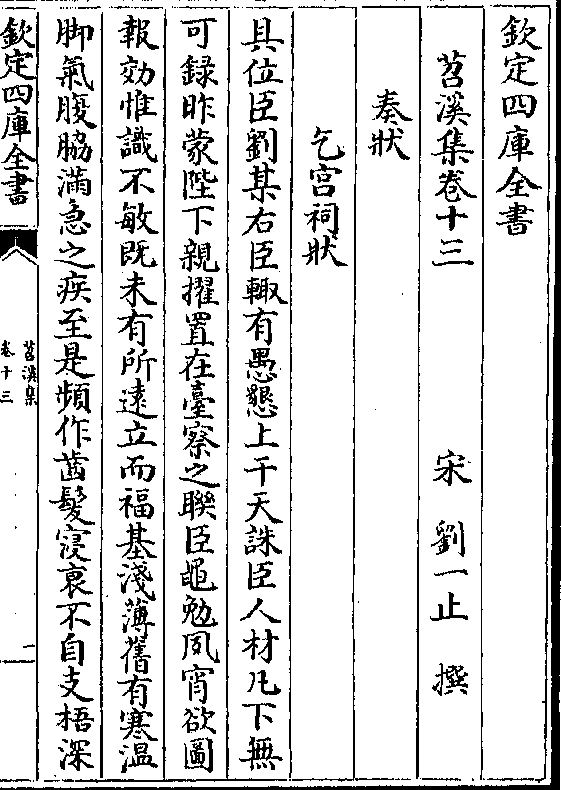 欽定四庫全書
苕溪集卷十三
宋　劉一止　撰
奏狀
乞宮祠狀
具位臣劉某右臣輙有愚懇上干天誅臣人材凡下無
可録昨蒙陛下親擢置在臺察之聨臣黽勉夙宵欲圖
報効惟識不敏既未有所遠立而福基淺薄舊有寒温
脚氣腹脇滿急之疾至是頻作齒髮寖衰不自支梧深
欽定四庫全書
苕溪集
卷十三
一